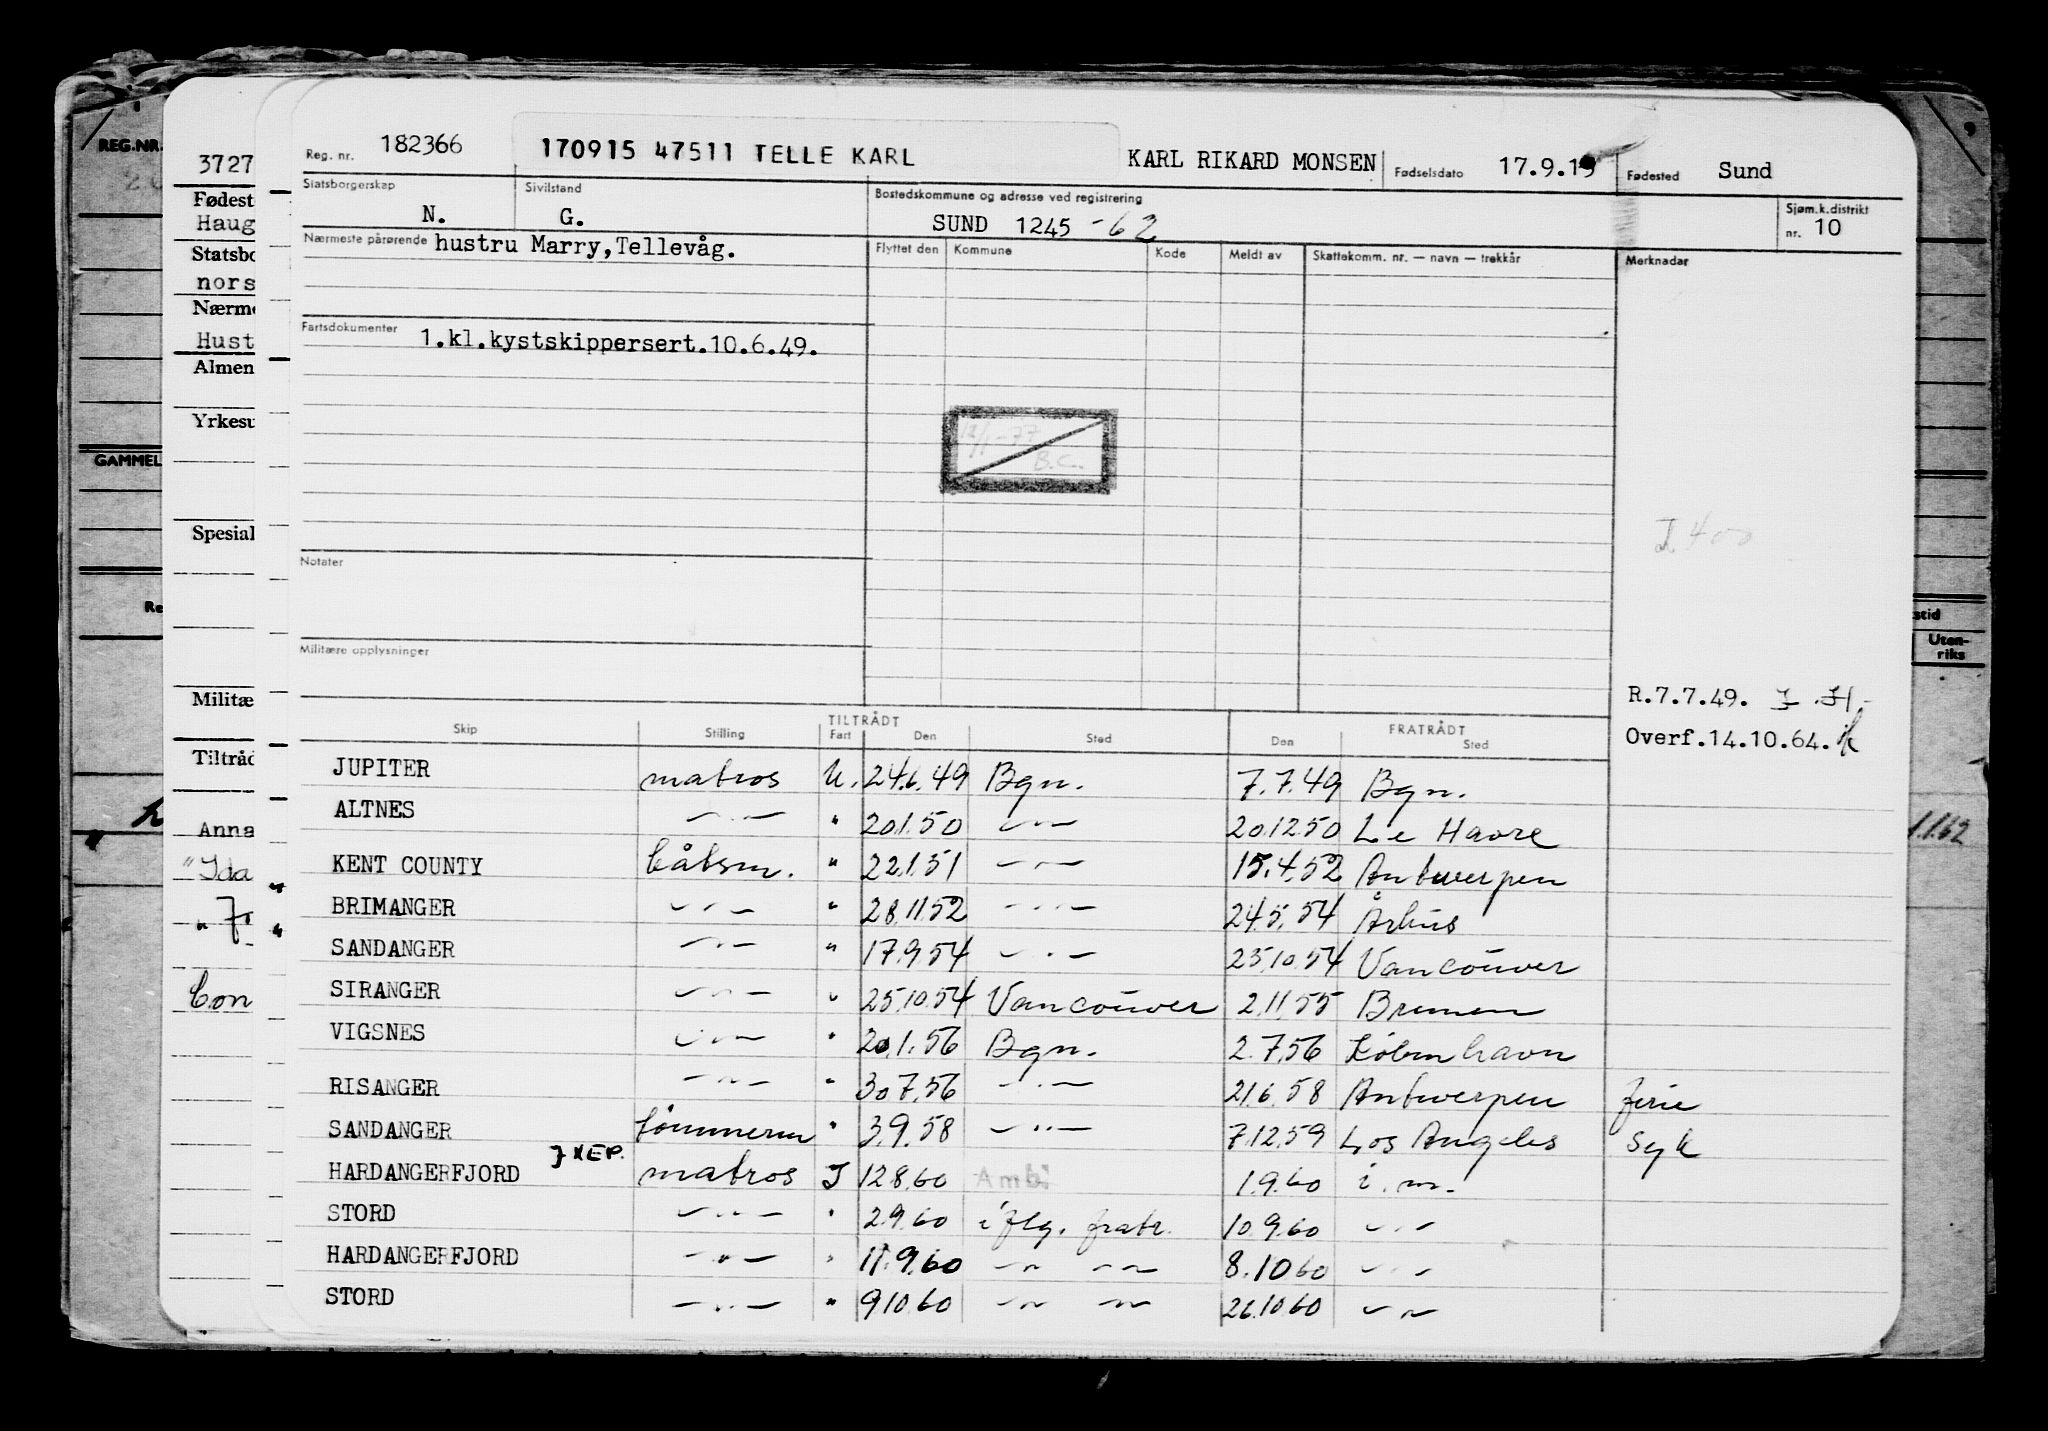 REG.NR.
3727
Fødest
Haug
Statsbo
nors
Nærme
Hust
Almen
Yrkesu
GAMMEL
Spesial
Re
Militæ
Tiltråd
Anna
"Ida
Con
Reg. nr. 182366 170915 47511 TELLE KARL KARL RIKARD MONSEN Fødselsdato 17.9.15 Fødested Sund
Statsborgerskap N. Sivilstand G. Bostedskommune og adresse ved registrering SUND 1245 -62 Sjøm.k.distrikt nr. 10
Nærmeste pårørende hustru Marry,Tellevåg. Flyttet den Kommune Kode Meldt av Skattekomm. nr. — navn — trekkår Merknader
Fartsdokumenter 1.kl.kystskippersert.10.6.49.
12/1-77
B.C.
I 400
Notater
Militære opplysninger
R.7.7.49.
Overf.14.10.64.
TILTRÅDT FRATRÅDT
Skip Stilling Fart Den Sted Den Sted
JUPITER matros U. 24.6.49 Bgn. 7.7.49 Bgn.
ALTNES —"— " 20.1.50 —"— 20.12.50 Le Havre
KENT COUNTY båtsm. " 22.1.51 —"— 15.4.52 Antwerpen
BRIMANGER —"— " 28.11.52 —"— 24.5.54 Århus
SANDANGER —"— " 17.9.54 —"— 25.10.54 Vancouver
SIRANGER —"— " 25.10.54 Vancouver 2.11.55 Bremen
VIGSNES —"— " 20.1.56 Bgn. 2.7.56 København
RISANGER —"— " 30.7.56 —"— 21.6.58 Antwerpen ferie
SANDANGER tømmerm " 3.9.58 —"— 7.12.59 Los Angeles syk
HARDANGERFJORD matros I 12.8.60 Amb. 1.9.60 i.m.
STORD —"— " 2.9.60 iflg. fratr. 10.9.60 —"—
HARDANGERFJORD —"— " 11.9.60 —"— —"— 8.10.60 —"—
STORD —"— " 9.10.60 —"— —"— 26.10.60 —"—
stid
Uten-
riks
1.1.62